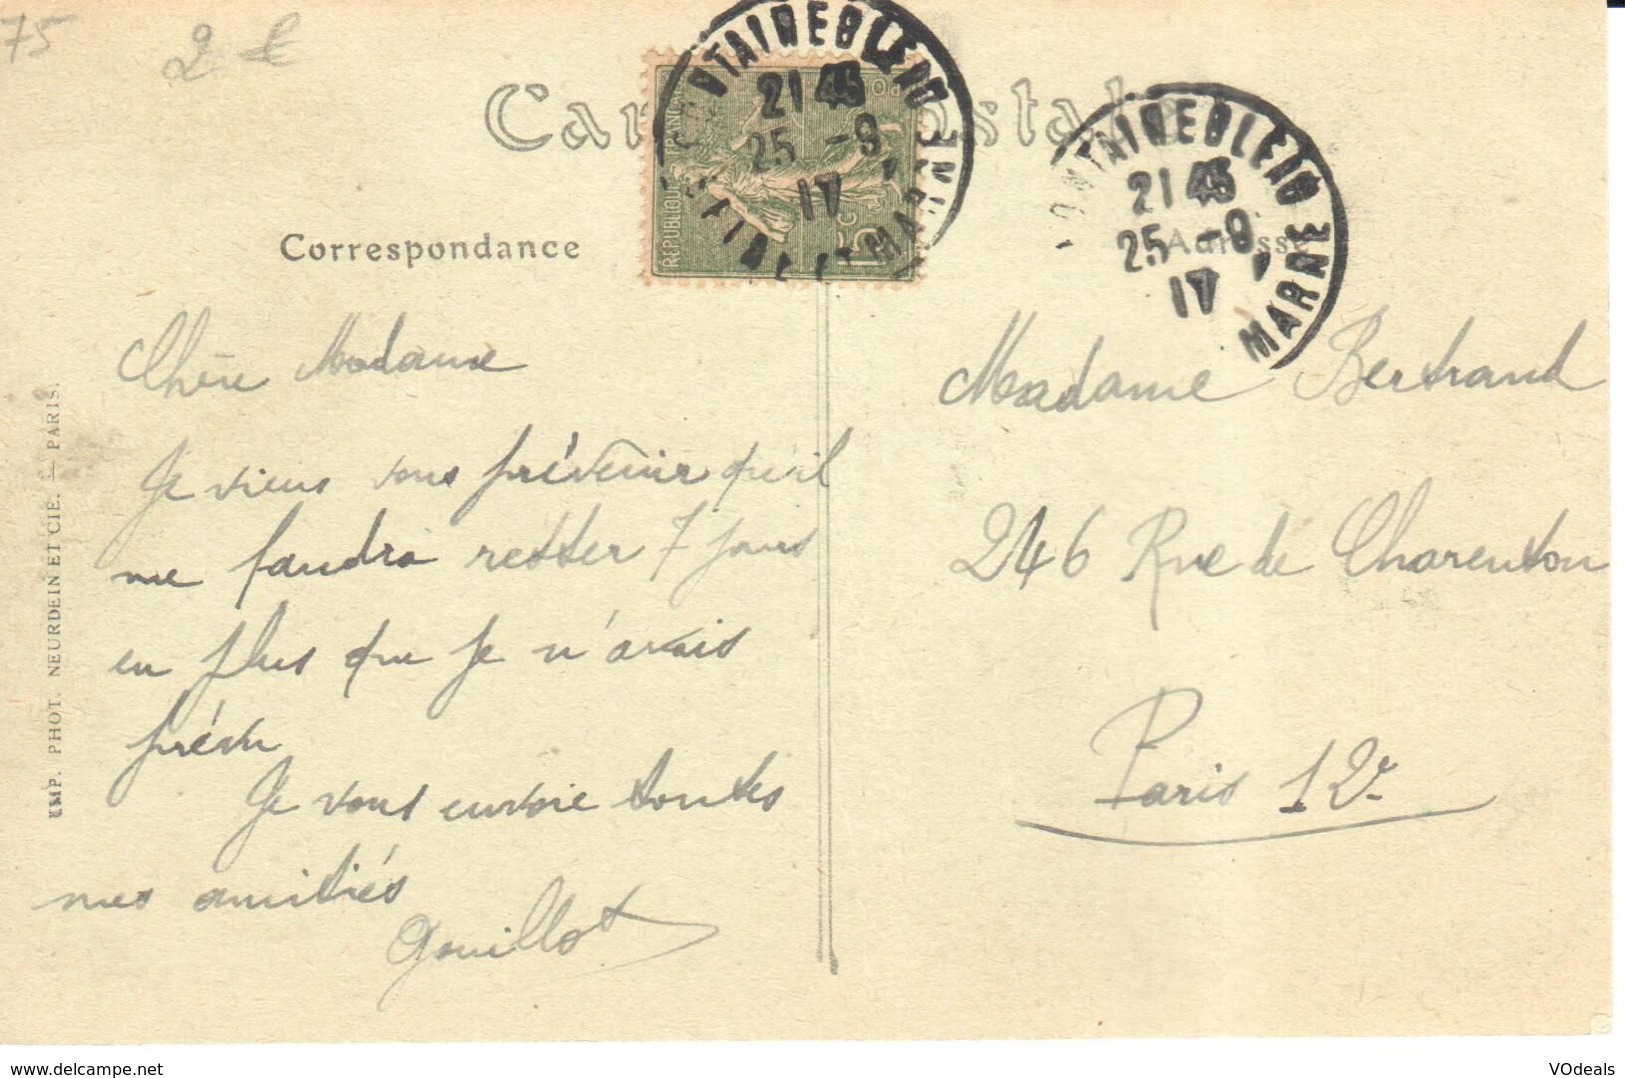 75
2 €
Carte Postale
FONTAINEBLEAU
21 45
25 -9
17
SEINE ET MARNE
REPUBLIQUE FRANCAISE
15c
FONTAINEBLEAU
21 45
25 -9
17
MARNE
Correspondance
Adresse
Chère Madame
Je viens vous prévenir qu'il
me faudra rester 7 jours
en plus que je n'avais
prévu
Je vous envoie toutes
mes amitiés
Gouillot
Madame Bertrand
246 Rue de Charenton
Paris 12e
IMP. PHOT. NEURDEIN ET CIE. — PARIS.
delcampe.net
VOdeals